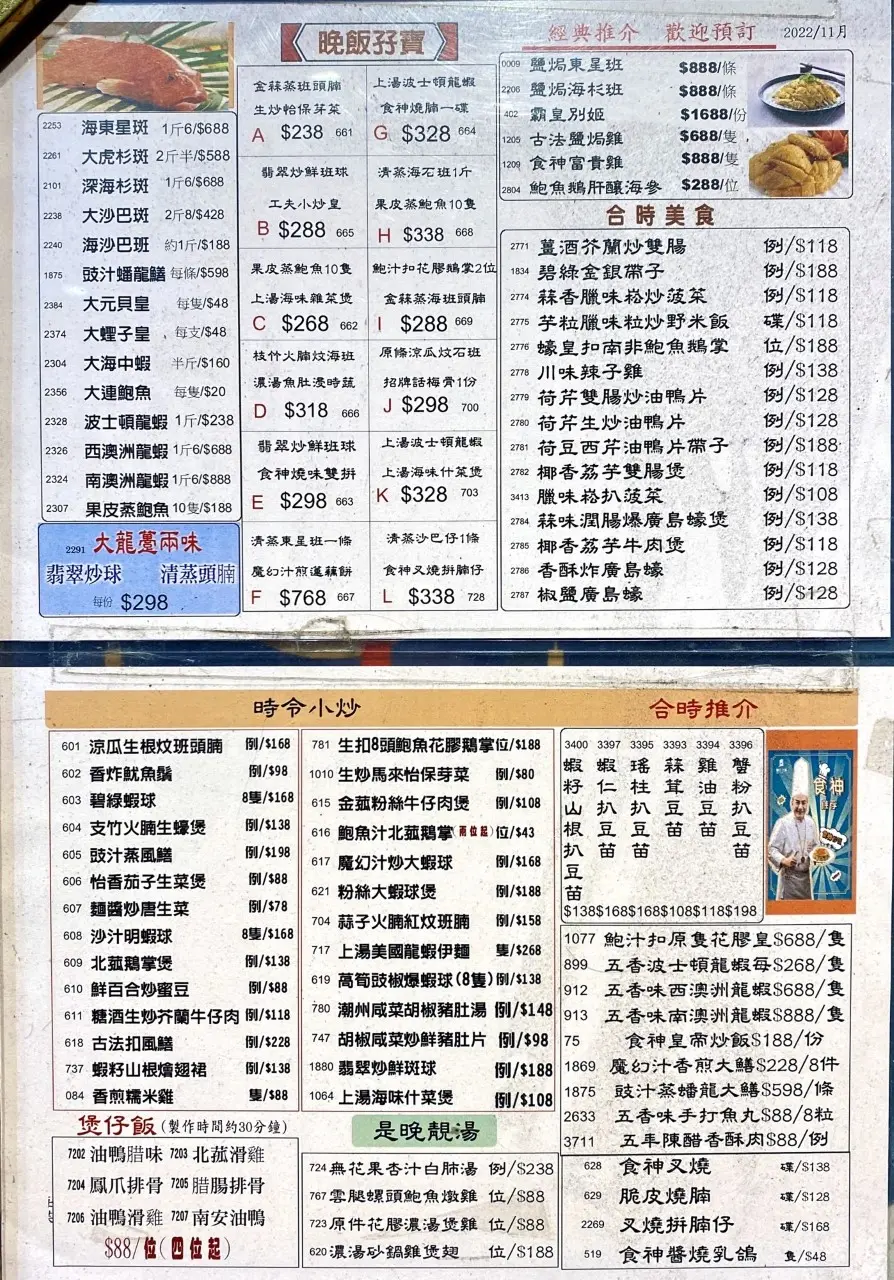 晚飯孖寶
經典推介 歡迎預訂 2022/11月
2253 海東星斑 1斤6/$688
2261 大虎杉斑 2斤半/$588
2101 深海杉斑 1斤6/$688
2238 大沙巴斑 2斤8/$428
2240 海沙巴斑 約1斤/$188
1875 豉汁蟠龍鱔 每條/$598
2384 大元貝皇 每隻/$48
2374 大蟶子皇 每支/$48
2304 大海中蝦 半斤/$160
2356 大連鮑魚 每隻/$20
2328 波士頓龍蝦 1斤/$238
2326 西澳洲龍蝦 1斤6/$688
2324 南澳洲龍蝦 1斤6/$888
2307 果皮蒸鮑魚 10隻/$188
2291 大龍躉兩味
翡翠炒球 清蒸頭腩
每份 $298
金蒜蒸班頭腩
生炒怡保芽菜
A $238 661
上湯波士頓龍蝦
食神燒腩一碟
G $328 664
翡翠炒鮮班球
工夫小炒皇
B $288 665
清蒸海石班1斤
果皮蒸鮑魚10隻
H $338 668
果皮蒸鮑魚10隻
上湯海味雜菜煲
C $268 662
鮑汁扣花膠鵝掌2位
金蒜蒸海班頭腩
I $288 669
枝竹火腩炆海班
濃湯魚肚浸時蔬
D $318 666
原條涼瓜炆石班
招牌話梅骨1份
J $298 700
翡翠炒鮮班球
食神燒味雙拼
E $298 663
上湯波士頓龍蝦
上湯海味什菜煲
K $328 703
清蒸東星班一條
魔幻汁煎蓮藕餅
F $768 667
清蒸沙巴仔1條
食神叉燒拼腩仔
L $338 728
0009 鹽焗東星班 $888/條
2206 鹽焗海杉班 $888/條
402 霸皇別姬 $1688/份
1205 古法鹽焗雞 $688/隻
1209 食神富貴雞 $888/隻
2804 鮑魚鵝肝釀海參 $288/位
合時美食
2771 薑酒芥蘭炒雙腸 例/$118
1834 碧綠金銀帶子 例/$188
2774 蒜香臘味崧炒菠菜 例/$118
2775 芋粒臘味粒炒野米飯 碟/$118
2776 蠔皇扣南非鮑魚鵝掌 位/$188
2778 川味辣子雞 例/$138
2779 荷芹雙腸炒油鴨片 例/$128
2780 荷芹生炒油鴨片 例/$128
2781 荷豆西芹油鴨片帶子 例/$188
2782 椰香荔芋雙腸煲 例/$118
3413 臘味崧扒菠菜 例/$108
2784 蒜味潤腸爆廣島蠔煲 例/$138
2785 椰香荔芋牛肉煲 例/$118
2786 香酥炸廣島蠔 例/$128
2787 椒鹽廣島蠔 例/$128
時令小炒
合時推介
601 涼瓜生根炆班頭腩 例/$168
602 香炸魷魚鬚 例/$98
603 碧綠蝦球 8隻/$168
604 支竹火腩生蠔煲 例/$138
605 豉汁蒸風鱔 例/$198
606 怡香茄子生菜煲 例/$88
607 麵醬炒唐生菜 例/$78
608 沙汁明蝦球 8隻/$168
609 北菰鵝掌煲 例/$138
610 鮮百合炒蜜豆 例/$88
611 糖酒生炒芥蘭牛仔肉 例/$118
618 古法扣風鱔 例/$228
737 蝦籽山根燴翅裙 例/$138
084 香煎糯米雞 隻/$88
781 生扣8頭鮑魚花膠鵝掌 位/$188
1010 生炒馬來怡保芽菜 例/$80
615 金菰粉絲牛仔肉煲 例/$108
616 鮑魚汁北菰鵝掌(兩位起) 位/$43
617 魔幻汁炒大蝦球 例/$168
621 粉絲大蝦球煲 例/$188
704 蒜子火腩紅炆班腩 例/$158
717 上湯美國龍蝦伊麵 隻/$268
619 萵筍豉椒爆蝦球(8隻) 例/$138
780 潮州咸菜胡椒豬肚湯 例/$148
747 胡椒咸菜炒鮮豬肚片 例/$98
1880 翡翠炒鮮斑球 例/$188
1064 上湯海味什菜煲 例/$108
3400 3397 3395 3393 3394 3396
蝦籽山根扒豆苗
蝦仁扒豆苗
瑤柱扒豆苗
蒜茸豆苗
雞油豆苗
蟹粉扒豆苗
$138 $168 $168 $108 $118 $198
食神
1077 鮑汁扣原隻花膠皇 $688/隻
899 五香波士頓龍蝦每 $268/隻
912 五香味西澳洲龍蝦 $688/隻
913 五香味南澳洲龍蝦 $888/隻
75 食神皇帝炒飯 $188/份
1869 魔幻汁香煎大鱔 $228/8件
1875 豉汁蒸蟠龍大鱔 $598/條
2633 五香味手打魚丸 $88/8粒
3711 五年陳醋香酥肉 $88/例
煲仔飯(製作時間約30分鐘)
7202 油鴨腊味 7203 北菰滑雞
7204 鳳爪排骨 7205 腊腸排骨
7206 油鴨滑雞 7207 南安油鴨
$88/位(四位起)
是晚靚湯
724 無花果杏汁白肺湯 例/$238
767 雲腿螺頭鮑魚燉雞 位/$88
723 原件花膠濃湯煲雞 位/$88
620 濃湯砂鍋雞煲翅 位/$188
628 食神叉燒 碟/$138
629 脆皮燒腩 碟/$128
2269 叉燒拼腩仔 碟/$168
519 食神醬燒乳鴿 隻/$48